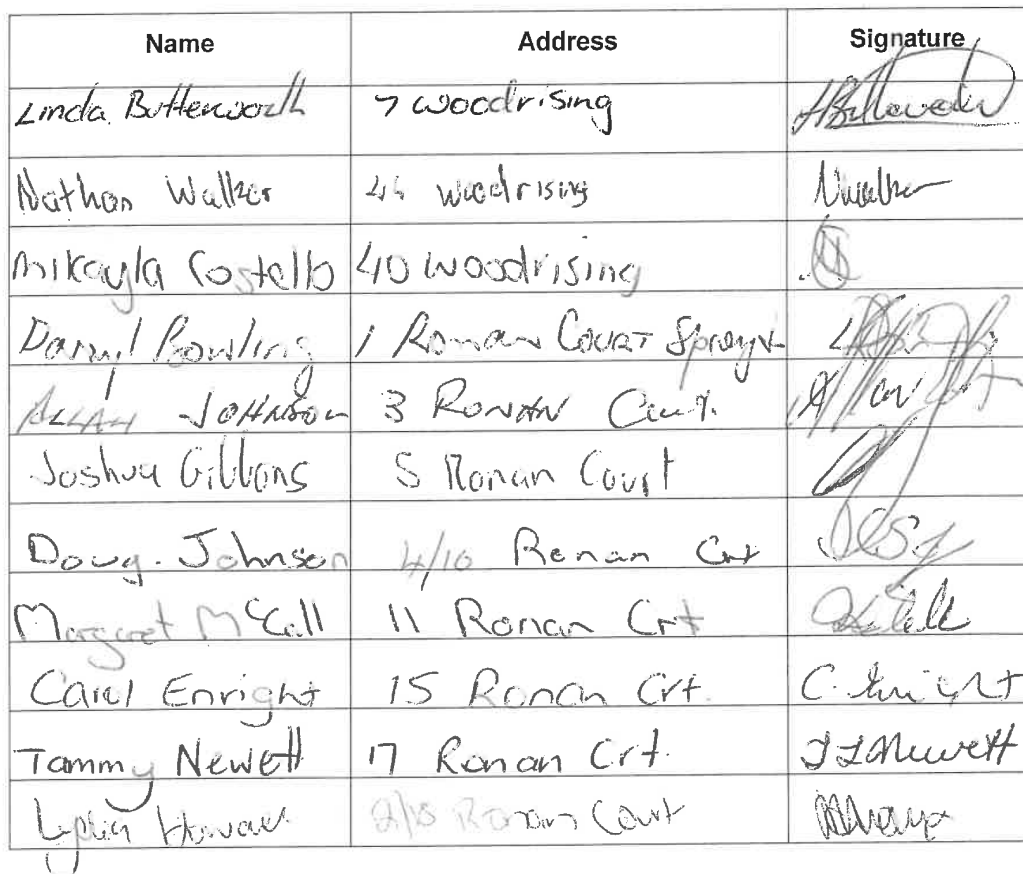 Name Address Signature
Linda Butterworth 7 woodrising
Nathan Walker 44 woodrising NWalker
Mikayla Costello 40 woodrising
Darryl Rowling 1 Ronan Court Spreyt
ALLAN JOHNSON 3 RONAN Court. Allan
Joshua Gibbons 5 Ronan Court
Doug. Johnson 4/10 Ronan Crt
Margaret McCall 11 Ronan Crt
Carol Enright 15 Ronan Crt. C. Enright
Tammy Newett 17 Ronan Crt. Newett
Lydia 2/10 Ronan Court